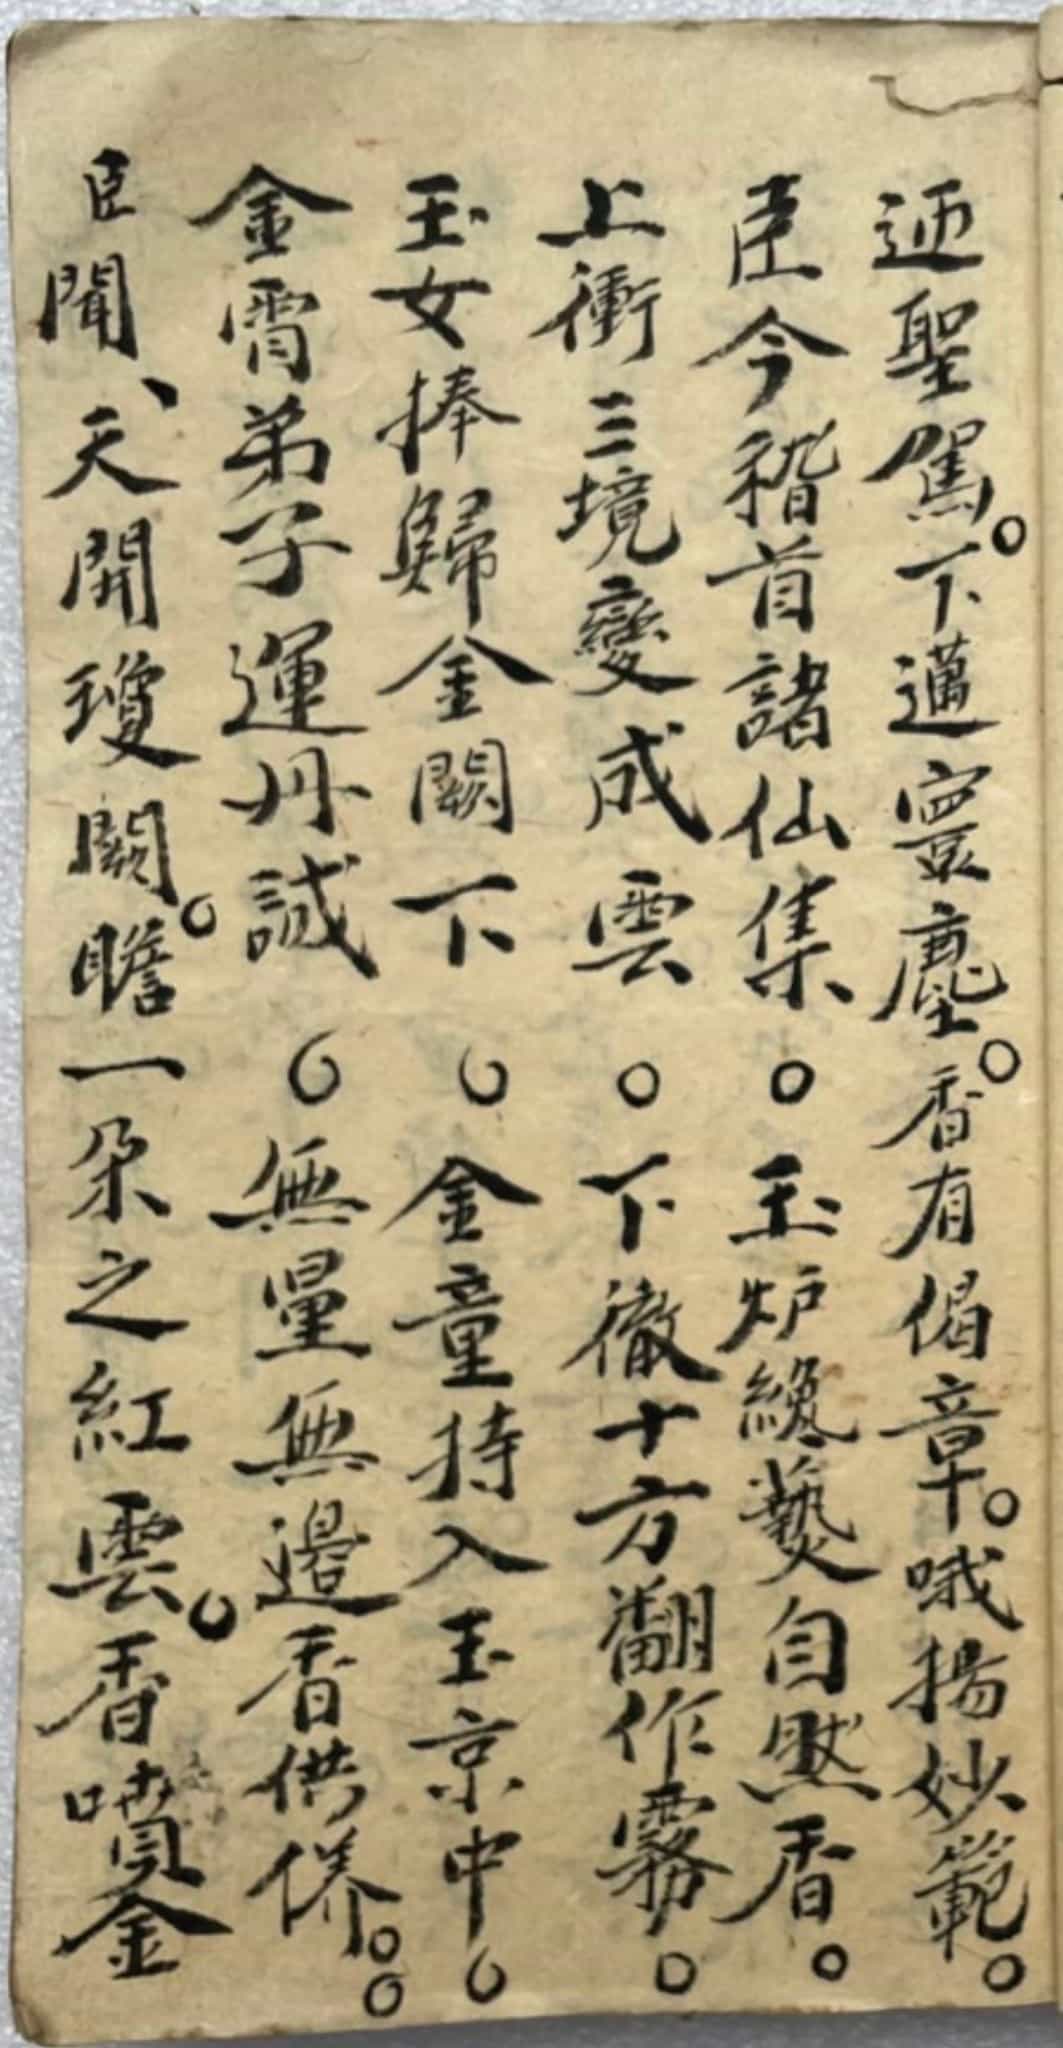 迊聖駕。下邁寰塵。香有偈章。哦揚妙範。
臣今稽首諸仙集。玉炉纔爇自然香。
上衝三境變成雲。下徹十方翻作霧。
玉女捧歸金闕下。金童持入玉京中。
金霄弟子運丹誠。無量無邊香供俻。。
臣聞、天開瓊闕。瞻一朵之紅雲。香噴金